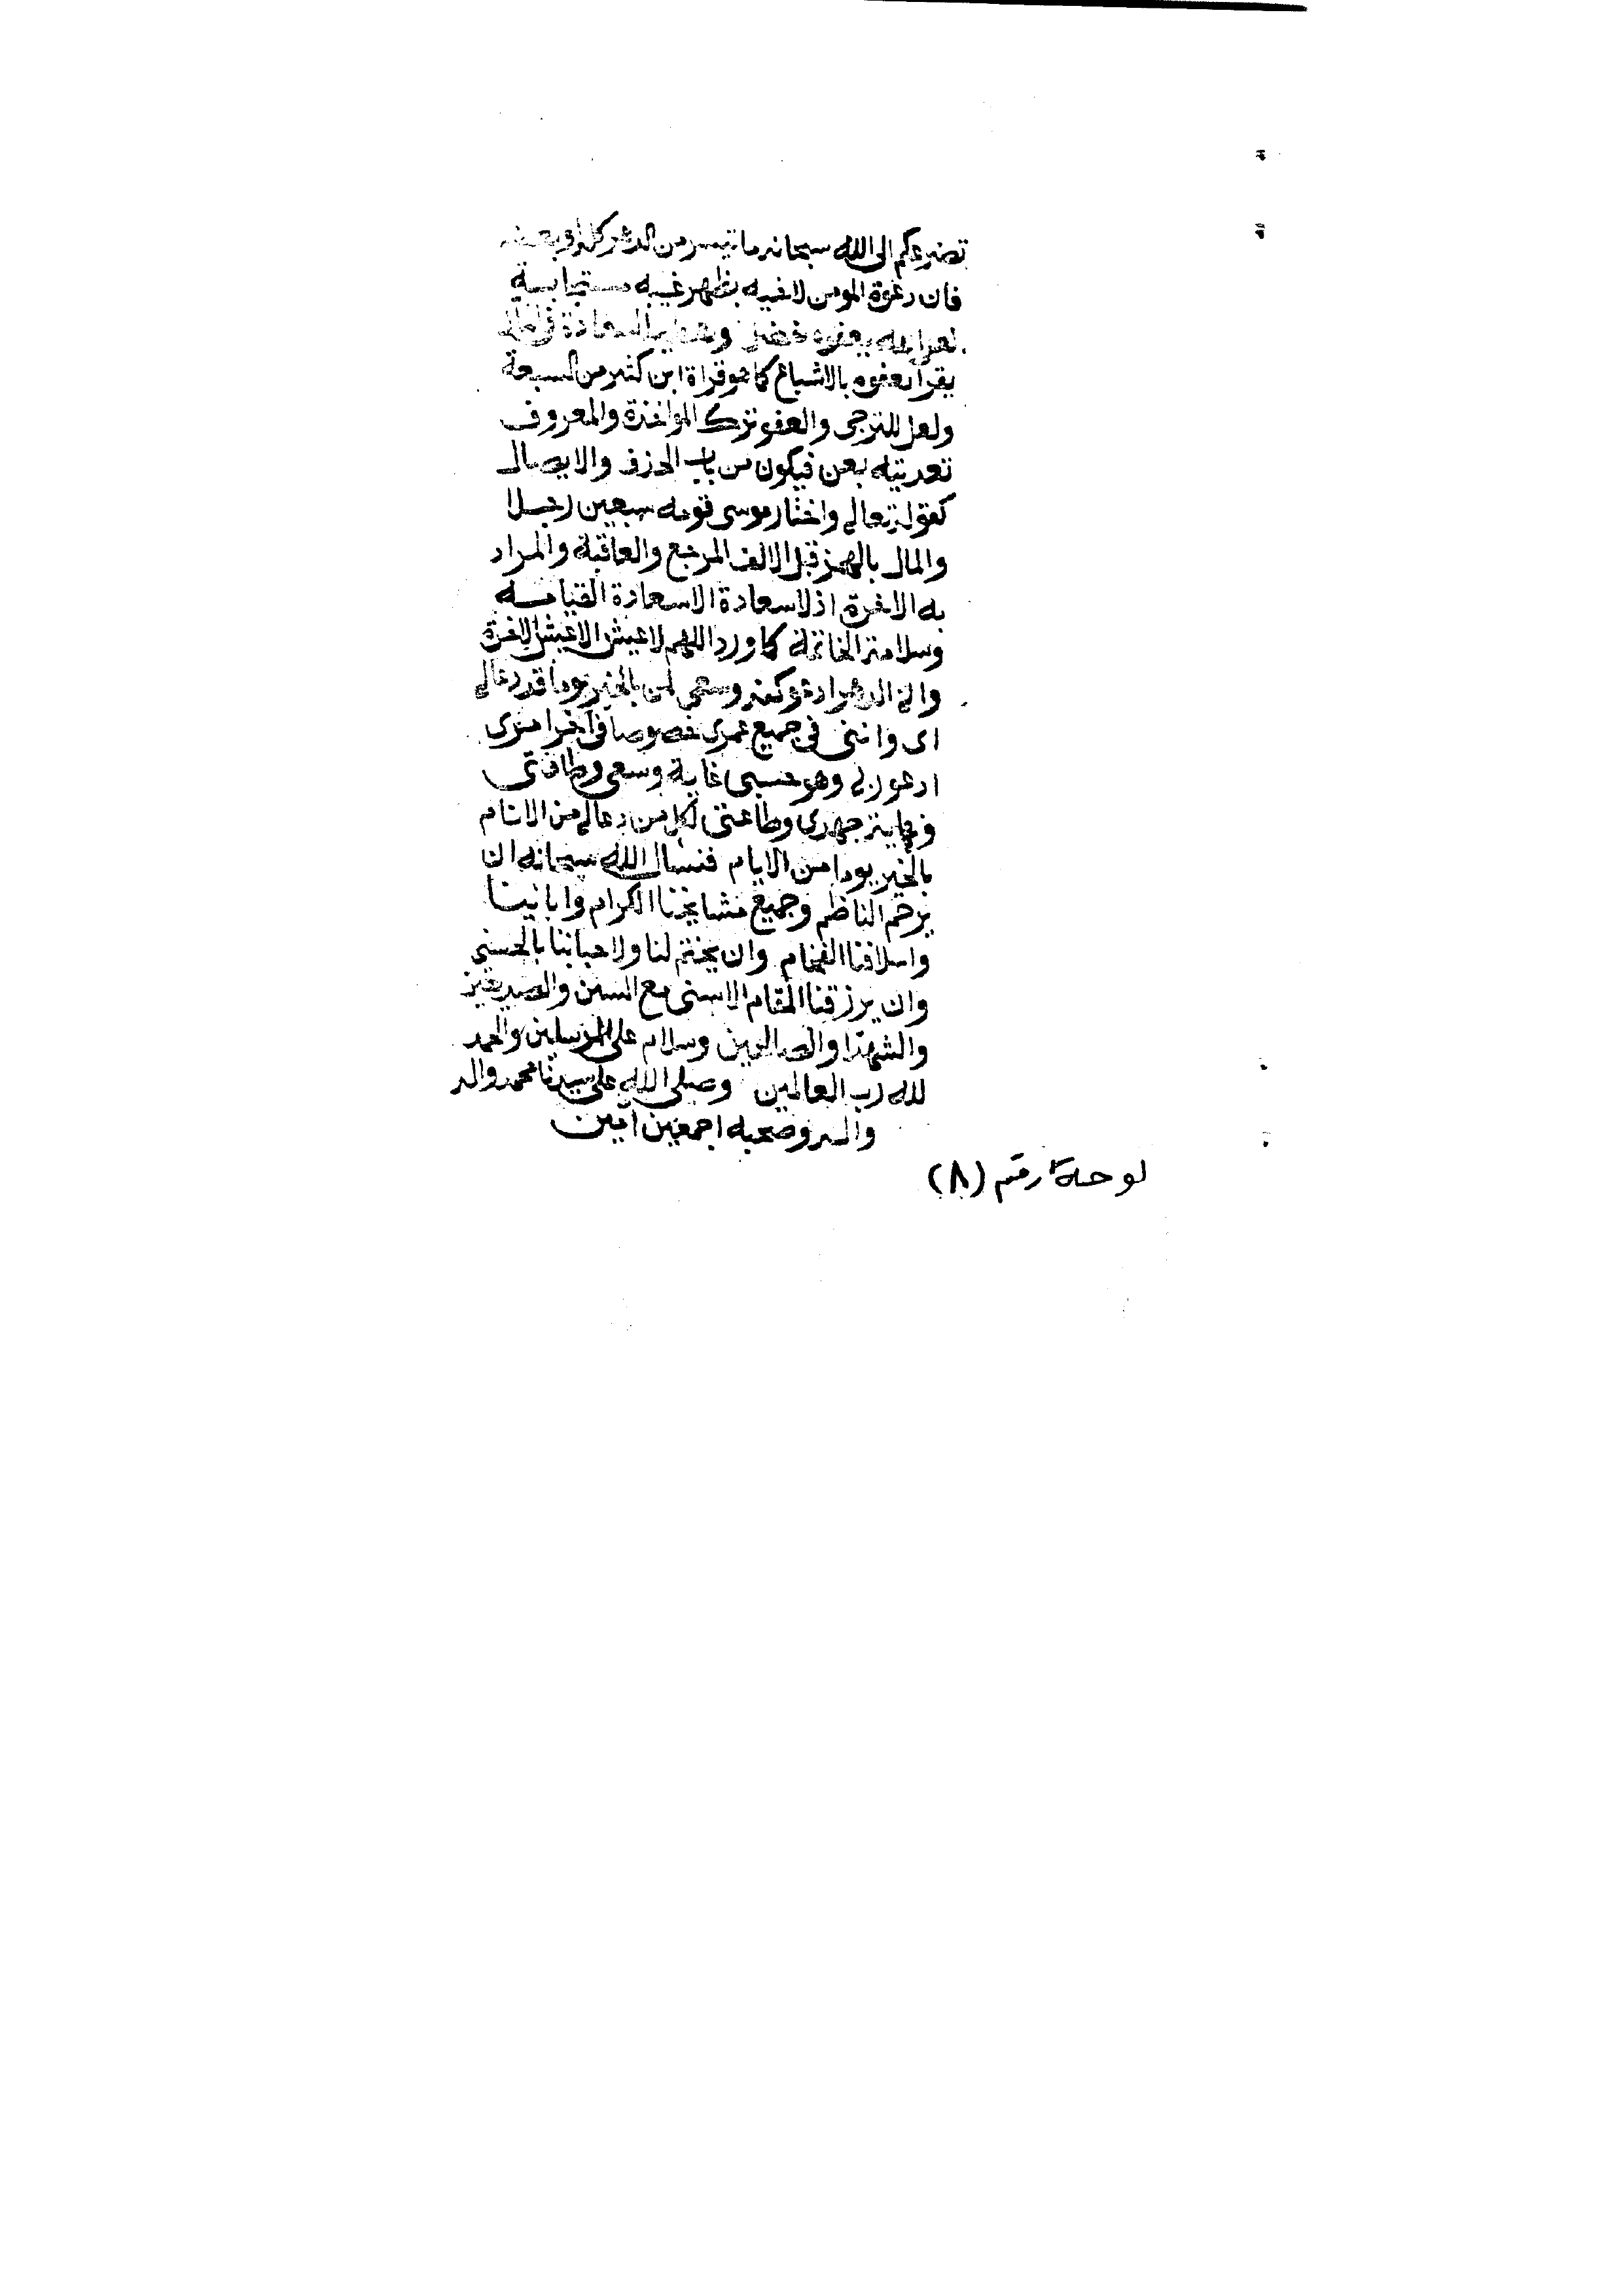 تضرعكم الى الله سبحانه ما تيسر من الدهر كله او بعضه
فان دعوة المومن لاخيه بظهر غيبه مستجابة
لعل الله يعفوه بفضل ويعطيه السعادة في المال
يقرأ يعفوه بالاشباع كما هو قراة ابن كثير من السبعة
ولعل للترجى والعفو ترك المواخذة والمعروف
تعديته بعن فيكون من باب الحذف والايصال
كقوله تعالى واختار موسى قومه سبعين رجلا
والمال بالهمز قبل الالف المرجع والعاقبة والمراد
به الاخرة اذ لا سعادة الا سعادة القيامه
وسلامة الخاتمة كما ورد اللهم لا عيش الا عيش الاخرة
واني الدهر ادعو كنه وسعي لمن بالخير يوما قد دعالي
اى واننى فى جميع عمرى خصوصا فى آخر امرى
ادعو ربي وهو حسبى غاية وسعى وطاقتى
ونهاية جهدى وطاعتى لكل من دعالي من الانام
بالخير يوما من الايام فنسال الله سبحانه ان
يرحم الناظم وجميع مشايخنا الكرام وابائينا
واسلافنا الفخام وان يختم لنا ولاحبابنا بالحسنى
وان يرزقنا المقام الاسنى مع النبيين والصديقين
والشهدا والصالحين وسلام على المرسلين والحمد
لله رب العالمين وصلى الله على سيدنا محمد واله
واله وصحبه اجمعين آمين
لوحة رقم (٨)